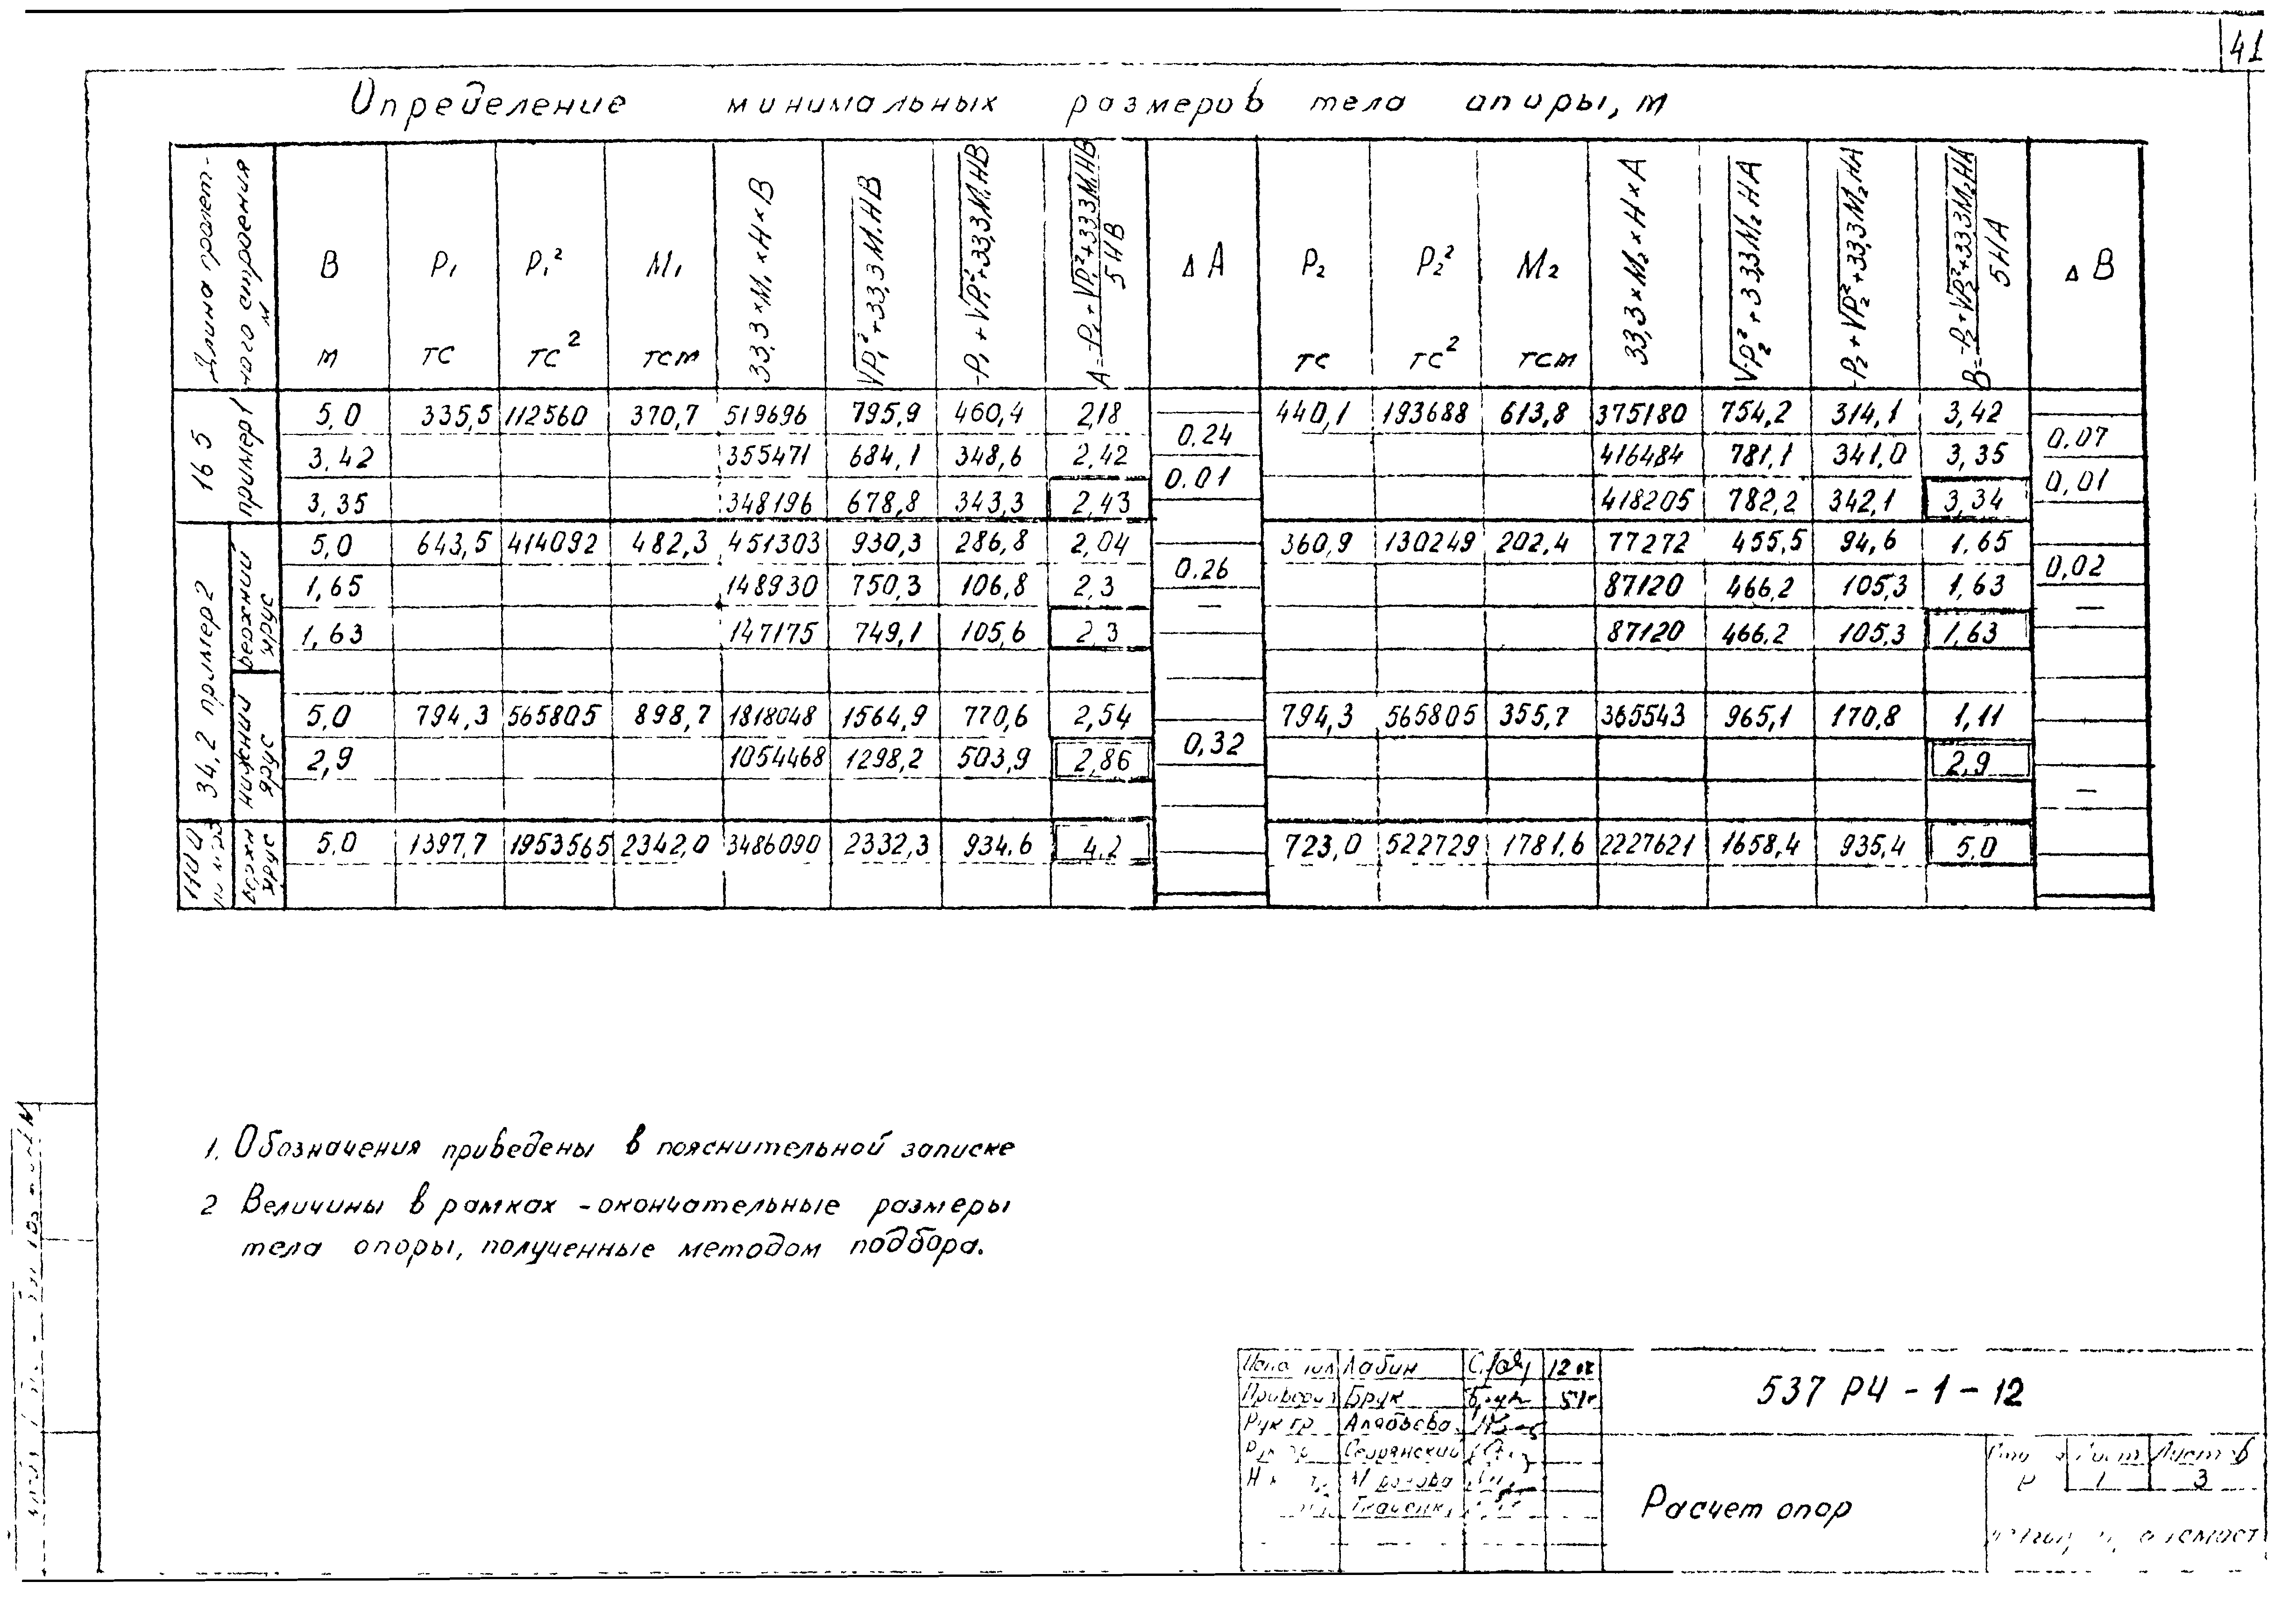 41
Определение минимальных размеров тела опоры, м
Длина пролетного строения м
B м
P₁ тс
P₁² тс²
M₁ тсм
33,3×M₁×H×B
√P₁²+33,3M₁HB
-P₁+√P₁²+33,3M₁HB
A=-P₁+√P₁²+33,3M₁HB / 5HB
ΔA
P₂ тс
P₂² тс²
M₂ тсм
33,3×M₂×H×A
√P₂²+33,3M₂HA
-P₂+√P₂²+33,3M₂HA
B=-P₂+√P₂²+33,3M₂HA / 5HA
ΔB
16 5 пример 1
5,0 335,5 112560 370,7 519696 795,9 460,4 2,18 440,1 193688 613,8 375180 754,2 314,1 3,42
0,24 0,07
3,42 355471 684,1 348,6 2,42 416484 781,1 341,0 3,35
0,01 0,01
3,35 348196 678,8 343,3 2,43 418205 782,2 342,1 3,34
34,2 пример 2
верхний ярус
5,0 643,5 414092 482,3 451303 930,3 286,8 2,04 360,9 130249 202,4 77272 455,5 94,6 1,65
0,26 0,02
1,65 148930 750,3 106,8 2,3 87120 466,2 105,3 1,63
— —
1,63 147175 749,1 105,6 2,3 87120 466,2 105,3 1,63
нижний ярус
5,0 794,3 565805 898,7 1818048 1564,9 770,6 2,54 794,3 565805 355,7 365543 965,1 170,8 1,11
0,32
2,9 1054468 1298,2 503,9 2,86 2,9
—
110,0
верхн ярус
5,0 1397,7 1953565 2342,0 3486090 2332,3 934,6 4,2 723,0 522729 1781,6 2227621 1658,4 935,4 5,0
1. Обозначения приведены в пояснительной записке
2 Величины в рамках - окончательные размеры
тела опоры, полученные методом подбора.
Лабин
Брук
Рук гр Алябьева
Ткаченк
537 РЧ - 1 - 12
Расчет опор
Лист
Р 1 3